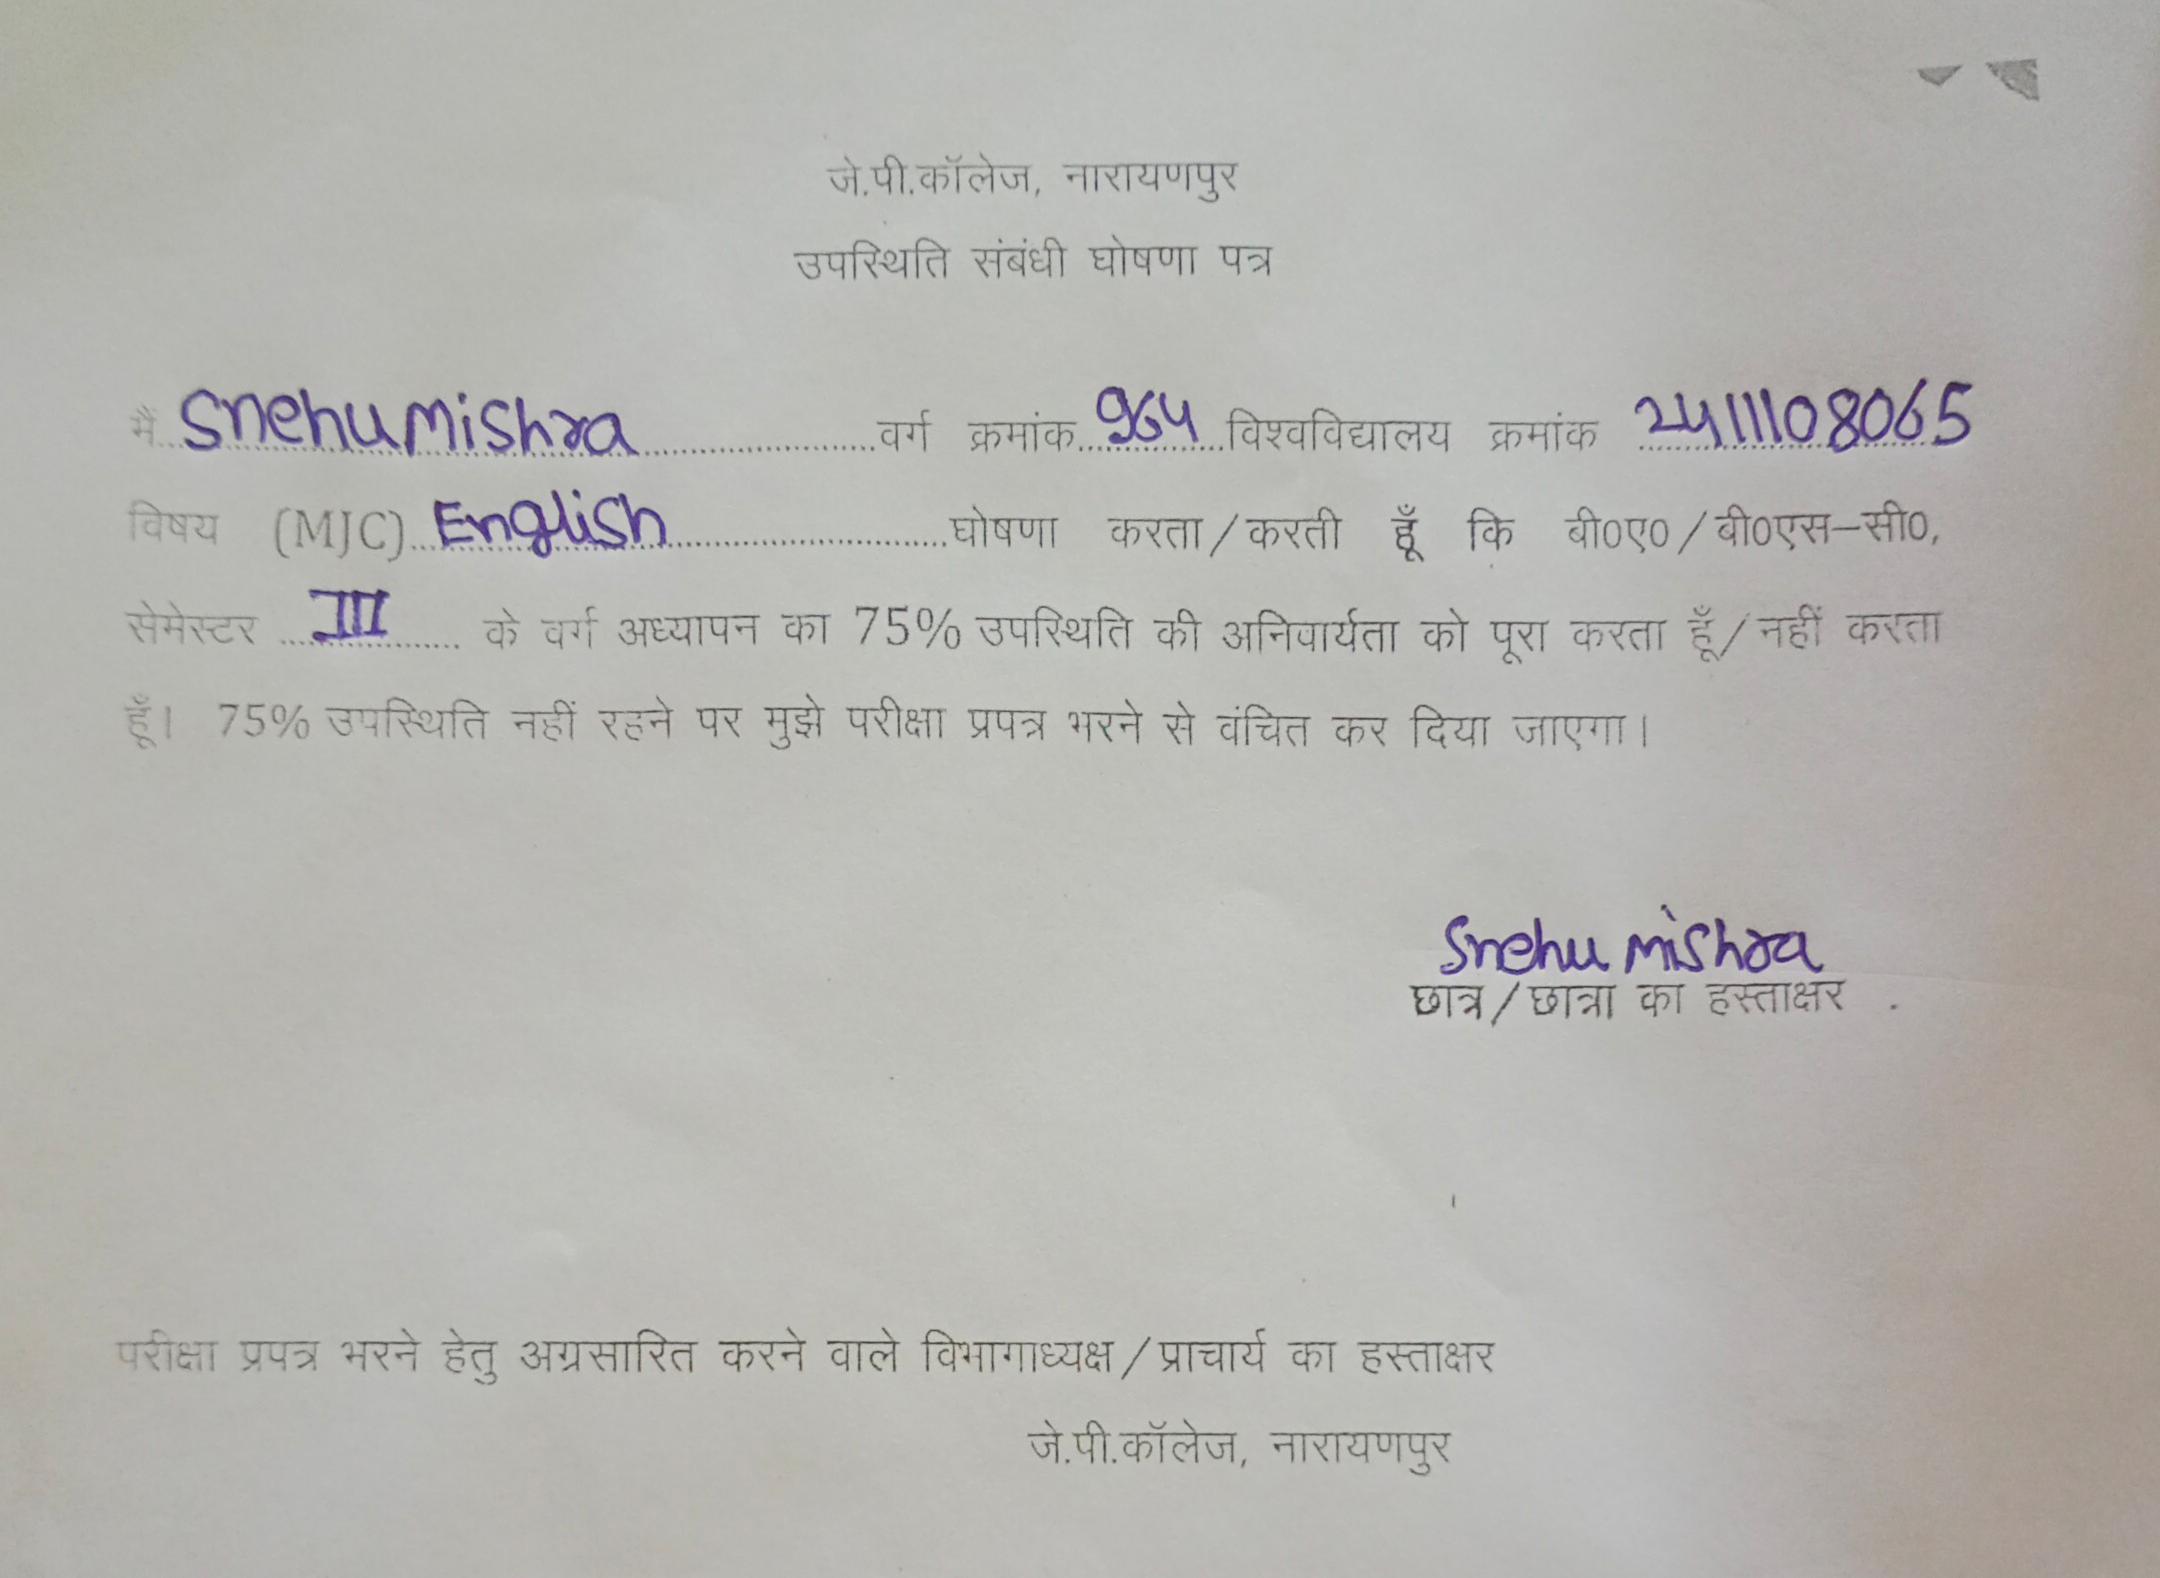 जे.पी.कॉलेज, नारायणपुर
उपस्थिति संबंधी घोषणा पत्र
मैं Snehu Mishra वर्ग क्रमांक 964 विश्वविद्यालय क्रमांक 2411108065
विषय (MJC) English घोषणा करता/करती हूँ कि बी0ए0/बी0एस–सी0,
सेमेस्टर III के वर्ग अध्यापन का 75% उपस्थिति की अनिवार्यता को पूरा करता हूँ/नहीं करता
हूँ। 75% उपस्थिति नहीं रहने पर मुझे परीक्षा प्रपत्र भरने से वंचित कर दिया जाएगा।
Snehu Mishra
छात्र/छात्रा का हस्ताक्षर .
परीक्षा प्रपत्र भरने हेतु अग्रसारित करने वाले विभागाध्यक्ष/प्राचार्य का हस्ताक्षर
जे.पी.कॉलेज, नारायणपुर